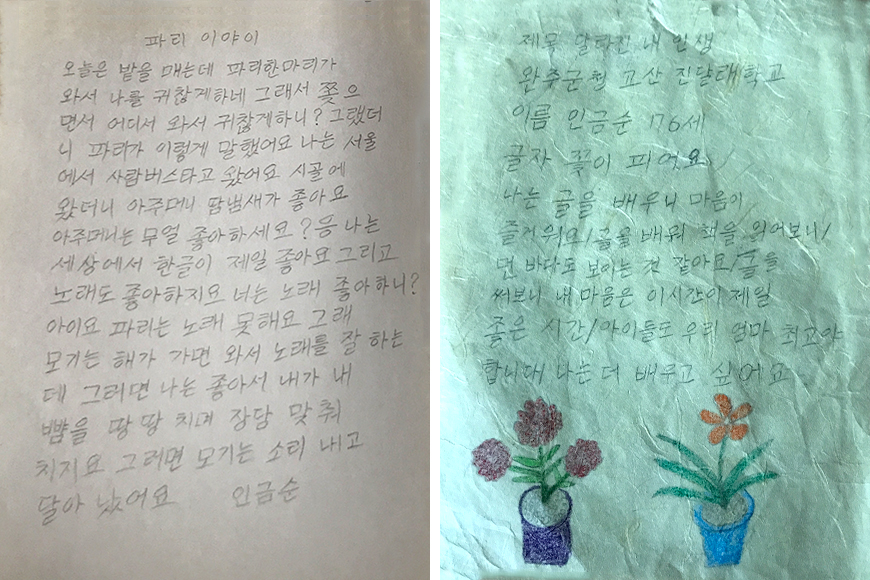 파리 이야이
오늘은 밭을 매는데 파리한마리가
와서 나를 귀찮게하네 그래서 쫓으
면서 어디서 와서 귀찮게하니? 그랬더
니 파리가 이렇게 말했어요 나는 서울
에서 사람버스타고 왔어요 시골에
왔더니 아주머니 땀냄새가 좋아요
아주머니는 무얼 좋아하세요? 응 나는
세상에서 한글이 제일 좋아요 그리고
노래도 좋아하지요 너는 노래 좋아하니?
아이요 파리는 노래 못해요 그래
모기는 해가 가면 와서 노래를 잘 하는
데 그러면 나는 좋아서 내가 내
뺨을 땅 땅 치며 장담 맞춰
치지요 그러면 모기는 소리 내고
달아 났어요 인금순
제목 달라진 내 인생
완주군청 고산 진달래학교
이름 인금순 76세
글자 꽃이 피어요
나는 글을 배우니 마음이
즐거워요/글을 배워 책을 읽어보니/
먼 바다도 보이는 것 같아요/글을
써보니 내 마음은 이시간이 제일
좋은 시간/아이들도 우리 엄마 최고야
합니다. 나는 더 배우고 싶어요